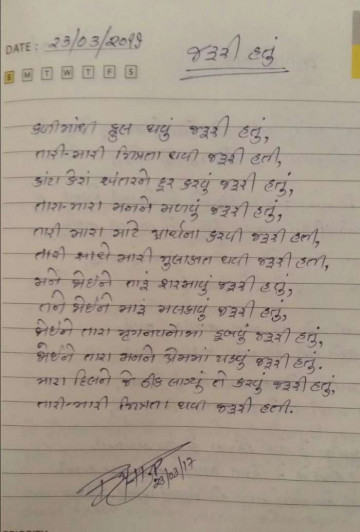 DATE: 23/03/2017
જરૂરી હતું
S M T W T F S
કળીમાંથી ફુલ થવું જરૂરી હતું,
તારી-મારી મિત્રતા થવી જરૂરી હતી,
કાંટા કેરાં અંતરને દૂર કરવું જરૂરી હતું,
તારા-મારા મનને મળવું જરૂરી હતું,
તારી મારા માટે પ્રાર્થના કરવી જરૂરી હતી,
તારી સાથે મારી મુલાકાત થવી જરૂરી હતી,
મને જોઇને તારૂં શરમાવું જરૂરી હતું,
તને જોઇને મારૂં મલકાવું જરૂરી હતું,
જોઇને તારા મૃગનયનોમાં ડૂબવું જરૂરી હતું,
જોઇને તારા મનને પ્રેમમાં પડવું જરૂરી હતું.
મારા દિલને જે ઠીક લાગ્યું તે કરવું જરૂરી હતું,
તારી-મારી મિત્રતા થવી જરૂરી હતી.
23/03/17